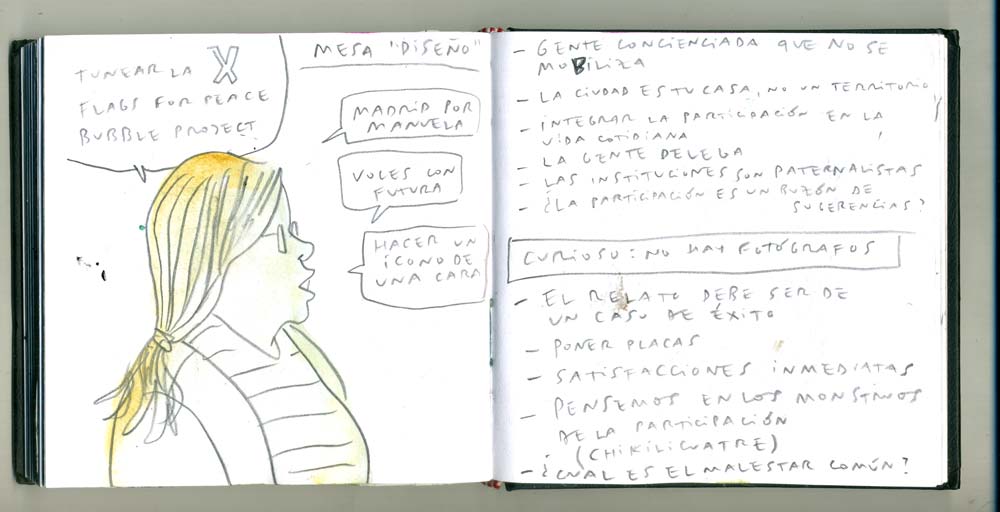 TUNEAR LA X
FLAGS FOR PEACE
BUBBLE PROJECT
MESA "DISEÑO"
MADRID POR
MANUELA
VOCES CON
FUTURA
HACER UN
ICONO DE
UNA CARA
- GENTE CONCIENCIADA QUE NO SE
MOBILIZA
- LA CIUDAD ES TU CASA, NO UN TERRITORIO
- INTEGRAR LA PARTICIPACIÓN EN LA
VIDA COTIDIANA
- LA GENTE DELEGA
- LAS INSTITUCIONES SON PATERNALISTAS
- ¿LA PARTICIPACIÓN ES UN BUZÓN DE
SUGERENCIAS?
CURIOSO: NO HAY FOTÓGRAFOS
- EL RELATO DEBE SER DE
UN CASO DE ÉXITO
- PONER PLACAS
- SATISFACCIONES INMEDIATAS
- PENSEMOS EN LOS MONSTRUOS
DE LA PARTICIPACIÓN
(CHIKILICUATRE)
- ¿CUAL ES EL MALESTAR COMÚN?